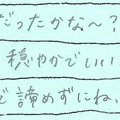 だったかな～？
穏やかでいい
で諦めずにね、